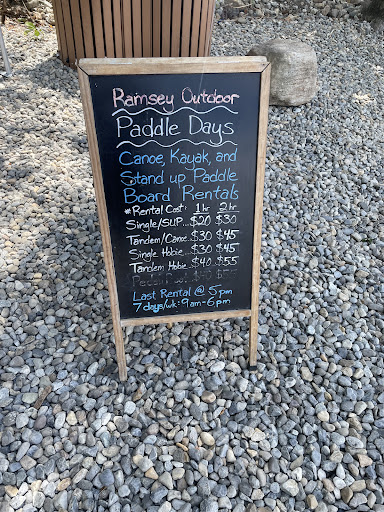 Ramsey Outdoor
Paddle Days
Canoe, Kayak, and
Stand up Paddle
Board Rentals
*Rental Cost: 1hr 2hr
Single/SUP...$20 $30
Tandem/Canoe...$30 $45
Single Hobie...$30 $45
Tandem Hobie...$40 $55
Last Rental @ 5pm
7 days/wk: 9am-6pm